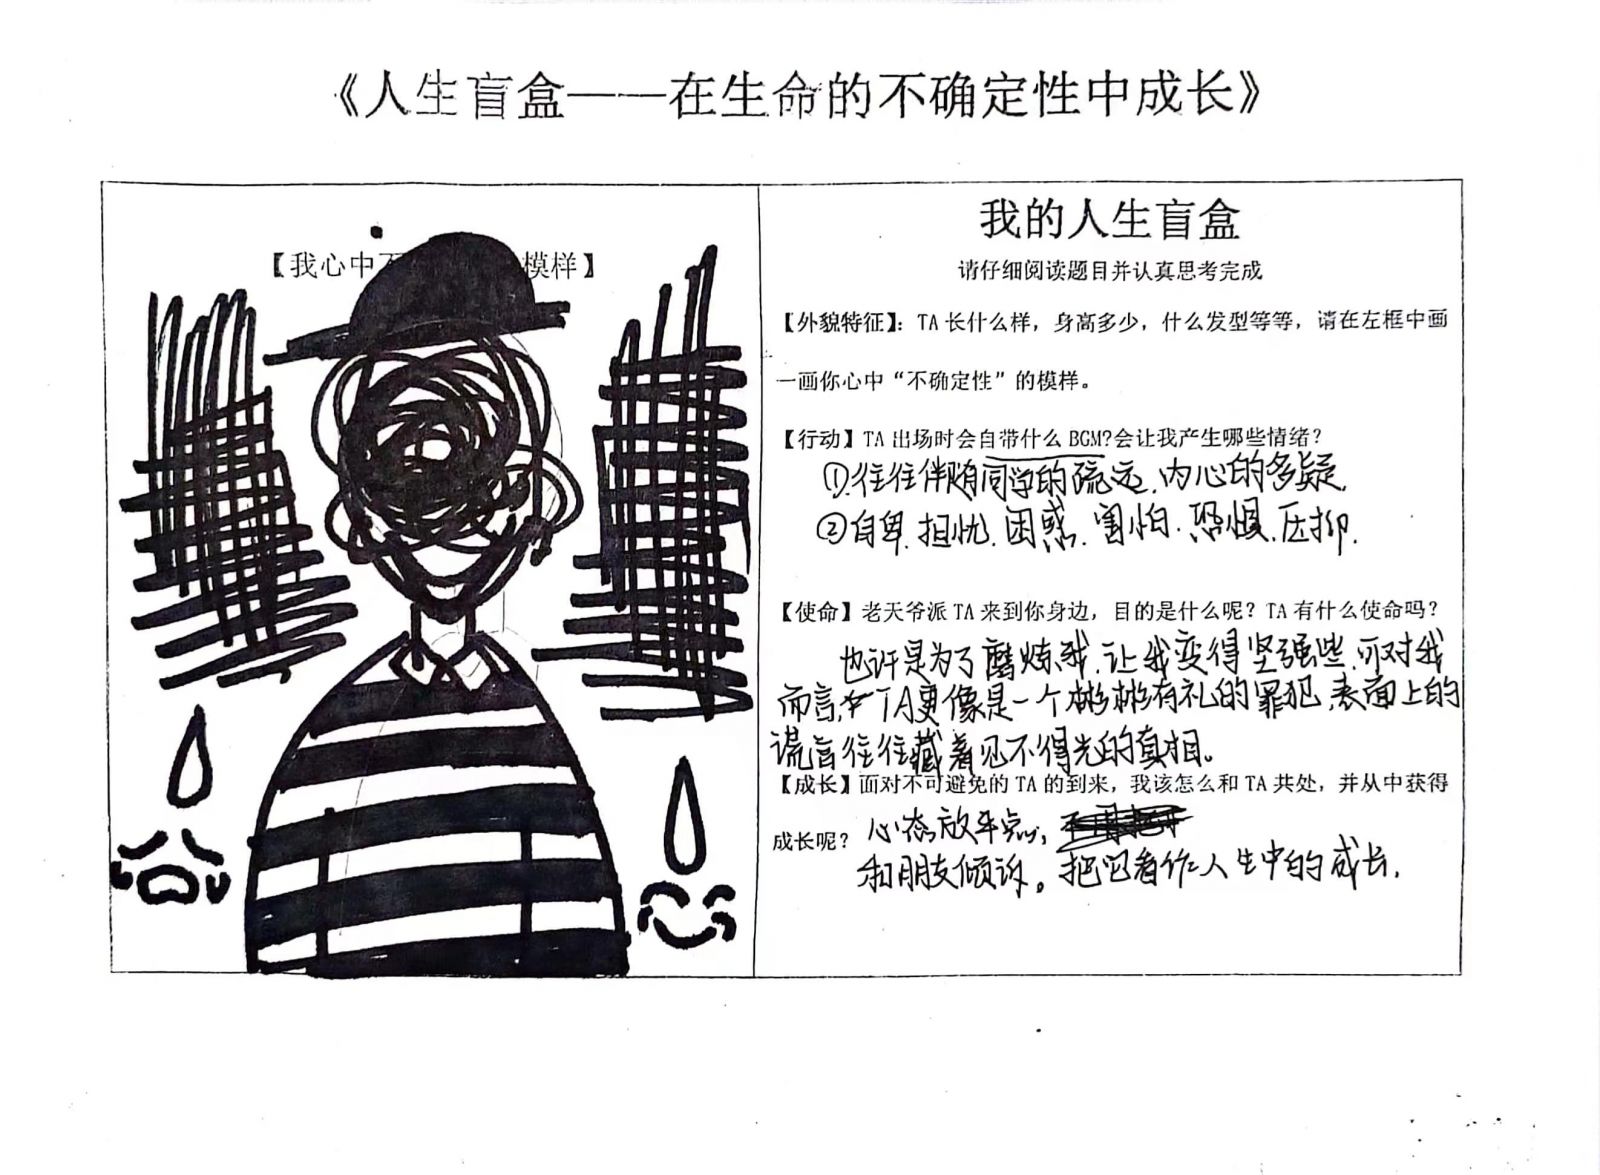 《人生盲盒——在生命的不确定性中成长》
【我心中不 模样】
我的人生盲盒
请仔细阅读题目并认真思考完成
【外貌特征】：TA 长什么样，身高多少，什么发型等等，请在左框中画
一画你心中“不确定性”的模样。
【行动】TA 出场时会自带什么 BGM?会让我产生哪些情绪？
①.往往伴随同学的疏远、内心的多疑.
②自卑.担忧.困惑.害怕.恐惧.压抑.
【使命】老天爷派 TA 来到你身边，目的是什么呢？TA 有什么使命吗？
也许是为了磨炼我.让我变得坚强些.可对我
而言,TA更像是一个彬彬有礼的罪犯,表面上的
谎言往往藏着见不得光的真相。
【成长】面对不可避免的 TA 的到来，我该怎么和 TA 共处，并从中获得
成长呢？ 心态放平点,
和朋友倾诉。把它看作人生中的成长.